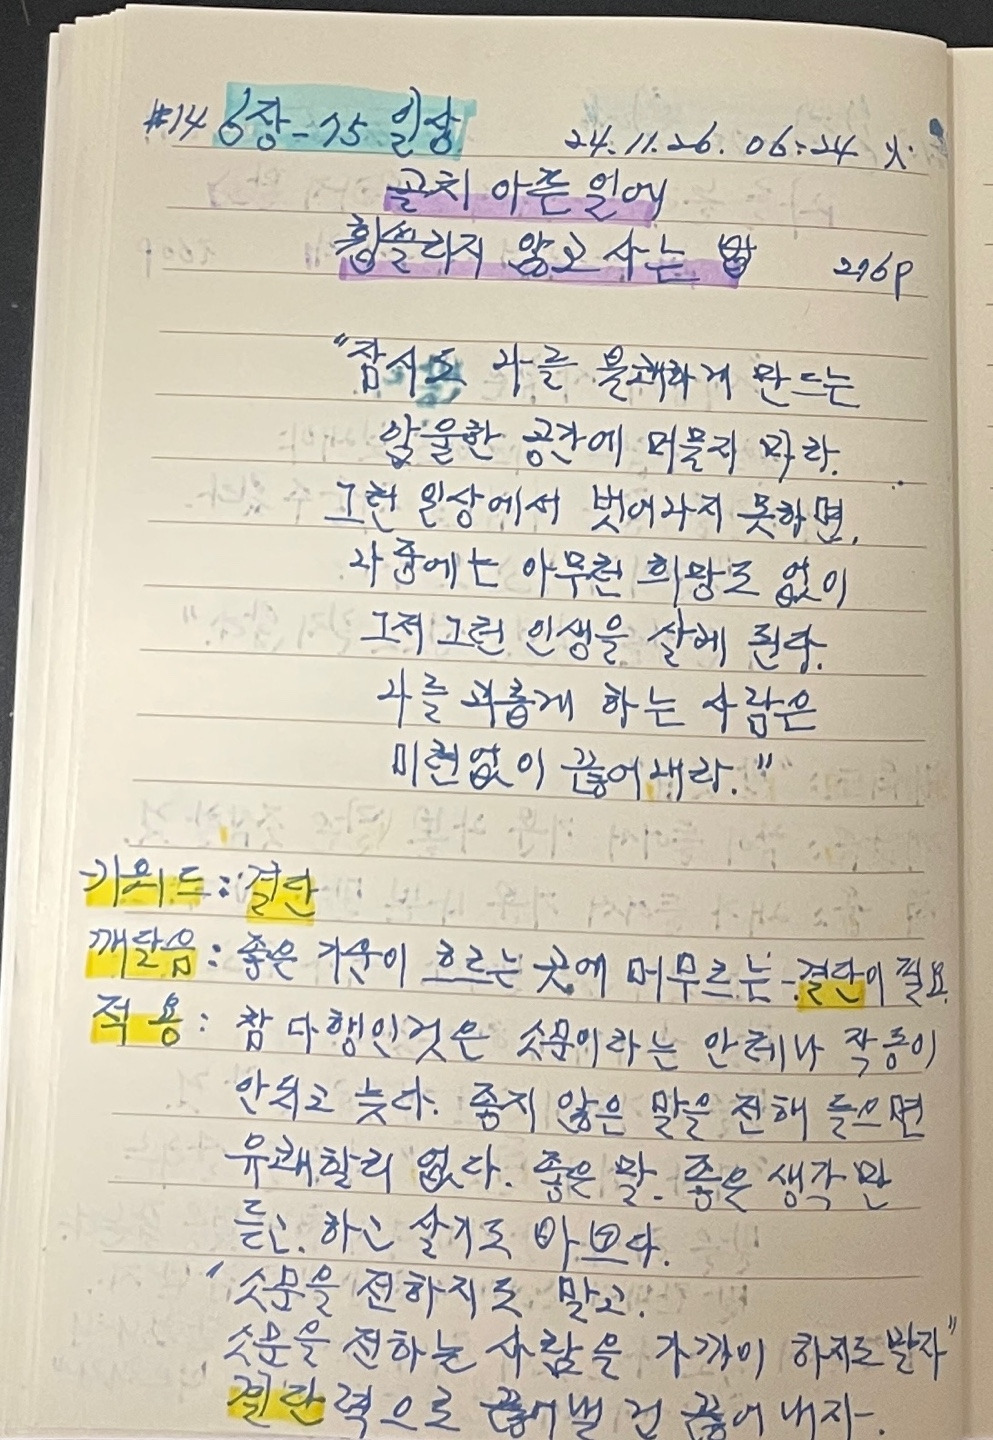 #14 6장-75 일상 24.11.26. 06:24 火.
골치 아픈 일에
휩쓸리지 않고 사는 법 276p
"잠시도 나를 불쾌하게 만드는
암울한 공간에 머물지 마라.
그런 일상에서 벗어나지 못하면,
나중에는 아무런 희망도 없이
그저 그런 인생을 살게 된다.
나를 괴롭게 하는 사람은
미련없이 끊어내라."
키워드 : 결단
깨달음 : 좋은 기운이 흐르는 곳에 머무르는 결단이 필요.
적용 : 참 다행인것은 소문이라는 안테나 작동이
안되고 늦다. 좋지 않은 말을 전해 들으면
유쾌할리 없다. 좋은 말. 좋은 생각만
듣고. 하고 살기도 바쁘다.
"소문을 전하지도 말고.
소문을 전하는 사람을 가까이 하지도 말자"
결단력으로 끊어낼 건 끊어 내자.